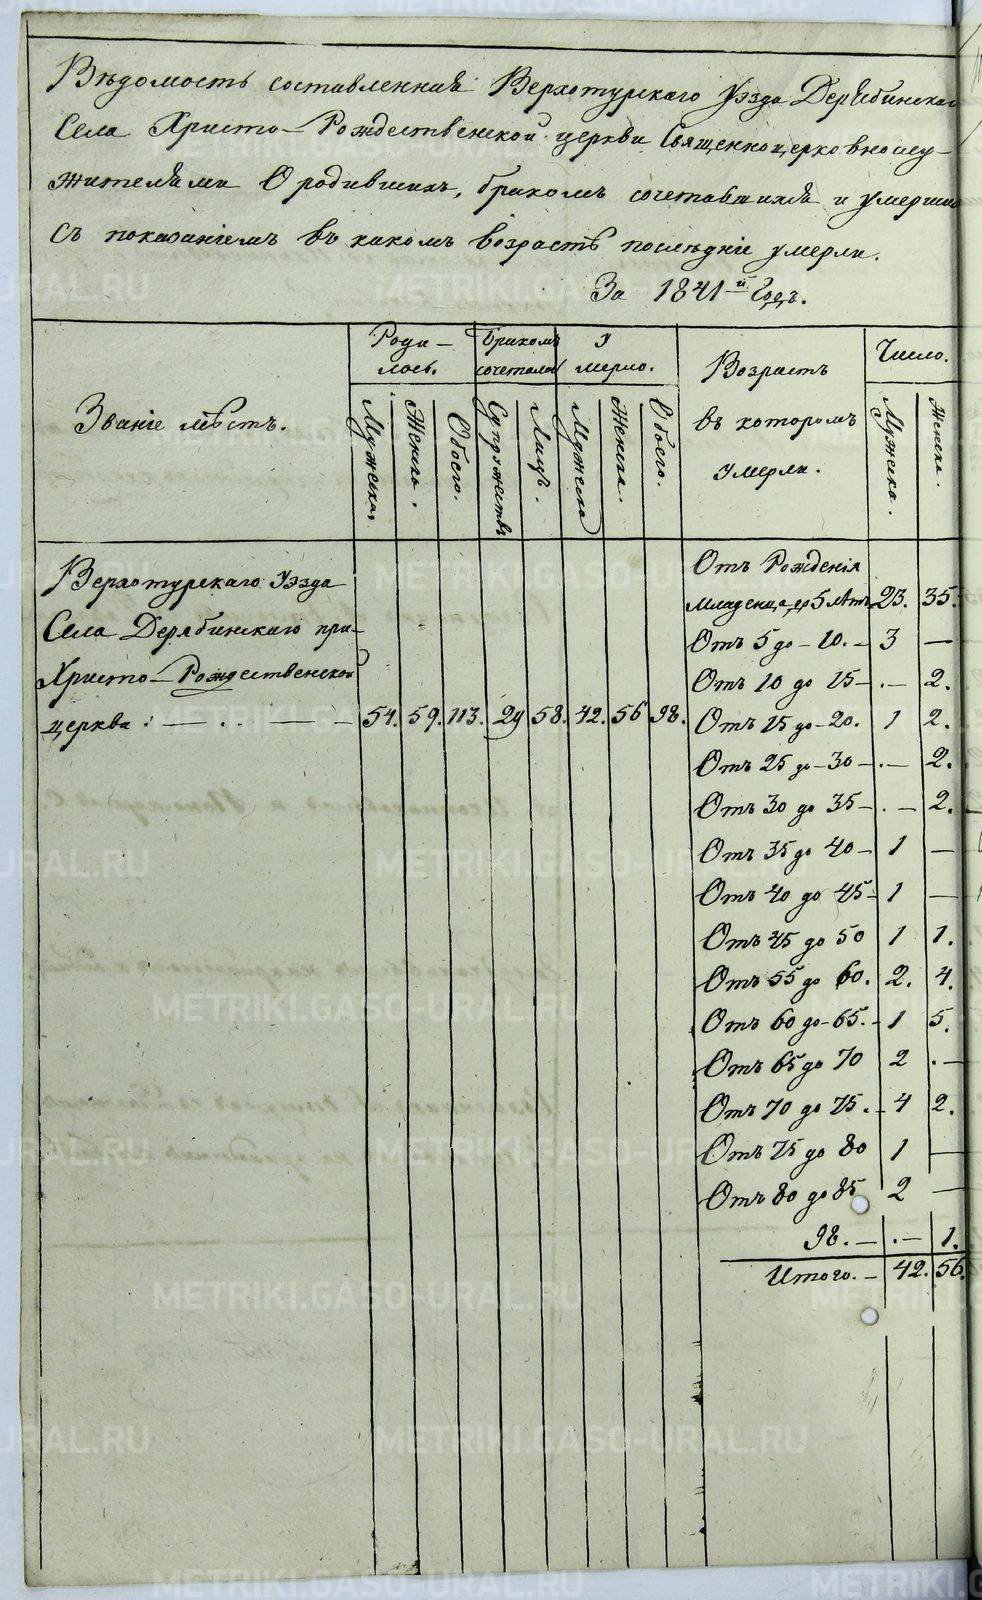 Вѣдомость составленная Верхотурскаго Уѣзда Дерябинскаго
Села Христо-Рождественской церкви Священноцерковнослу-
жителями О родившихъ, бракомъ сочетавшихся и умершихъ
съ показаніемъ въ какомъ возрастѣ послѣдніе умерли.
За 1841й Годъ.
Званіе мѣстъ.
Роди-
лось.
Мужеска.
Женска.
Обоего.
Бракомъ
сочетались
Супружествъ
Лицъ.
У
мерло.
Мужеска
Женска.
Обоего.
Возрастъ
въ которомъ
умерли.
Число.
Мужеска.
Женска.
Верхотурскаго Уѣзда
Села Дерябинскаго при-
Христо-Рождественской
церкви: — . . — 54. 59. 113. 29 58. 42. 56 98.
Отъ Рожденія
младенца до 5 лѣтъ 23. 35.
Отъ 5 до - 10. - 3 —
Отъ 10 до 15 - . — 2.
Отъ 15 до - 20. 1 2.
Отъ 25 до - 30 - . — 2.
Отъ 30 до 35 - . — 2.
Отъ 35 до 40 - 1 —
Отъ 40 до 45 - 1 —
Отъ 45 до 50 1 1.
Отъ 55 до 60. 2. 4.
Отъ 60 до - 65. - 1 5.
Отъ 65 до 70 2 . —
Отъ 70 до 75. - 4 2.
Отъ 75 до 80 1 —
Отъ 80 до 85 2 —
98. — . — 1.
Итого. - 42. 56.
METRIKI.GASO-URAL.RU